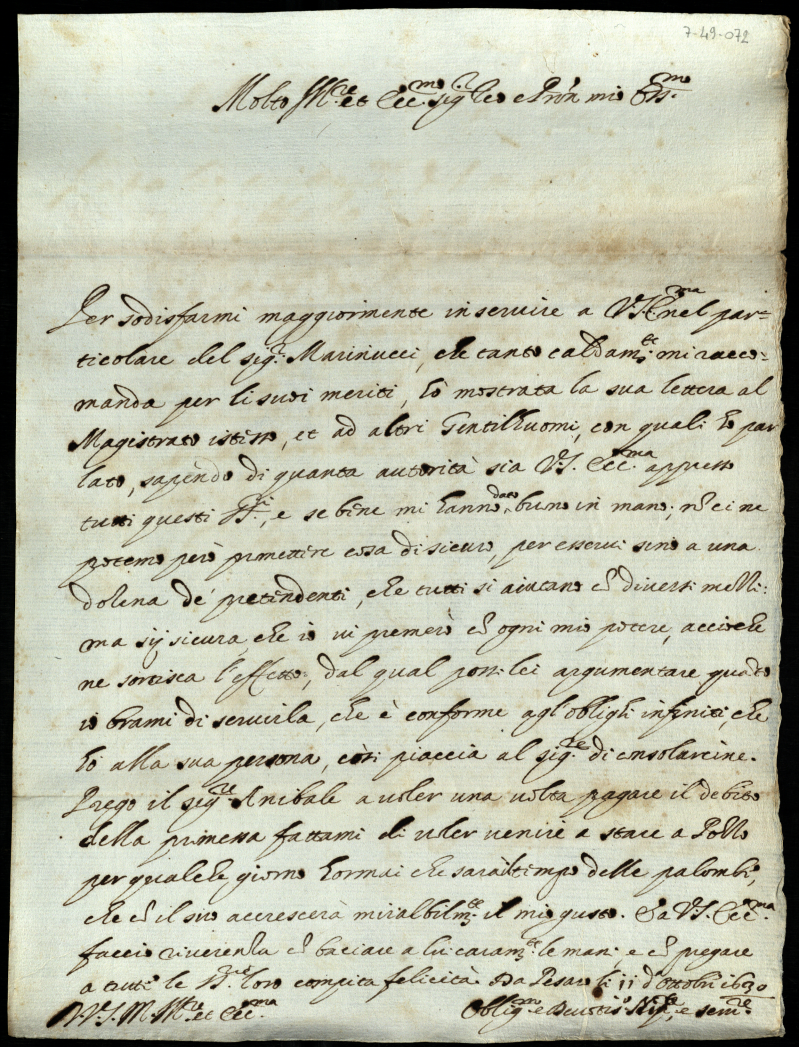 7-49-072
Molto Ill.re et Ecc.mo sig.r e Pron mio Oss.mo
Per sodisfarmi maggiormente in servire a V.S. Ecc.ma nel par=
ticolare del sig.r Marinucci, che tanto caldam.te mi racco=
manda per li suoi meriti, hò mostrata la sua lettera al
Magistrato istesso, et ad altri Gentilhuomi, con quali hò par
lato, sapendo di quanta autorità sia V.S. Ecc.ma appresso
tutti questi SS.ri, e se bene mi hanno dato buono in mano, nõ ci ne
potemo però promettere cosa di sicuro, per esservi sino a una
dozena de' pretendenti, che tutti si aiutano cõ diversi mezzi:
ma sij sicura, che io vi premerò cõ ogni mio potere, acciochè
ne sortisca l'effetto, dal qual possi lei argumentare quãto
io brami di servirla, che è conforme agl'oblighi infiniti, che
hò alla sua persona, così piaccia al sig.re di consolarcine.
Prego il sig.re Anibale a voler una volta pagare il debito
della promessa fattami di voler venire a stare a Pozzo
per qualche giorno hormai che sarà il tempo delle palombe,
che cõ il suo accrescerà mirabilm.te il mio gusto. Et a V.S. Ecc.ma
faccio riverenza cõ baciare a lei caram.te le mani e cõ pregare
a tutti le SS.rie loro compita felicità. Da Pesaro li 11 d'Ottobre 1630
D.V.S. M. Ill.re et Ecc.ma
Oblig.mo e Devotis.o e ser.re